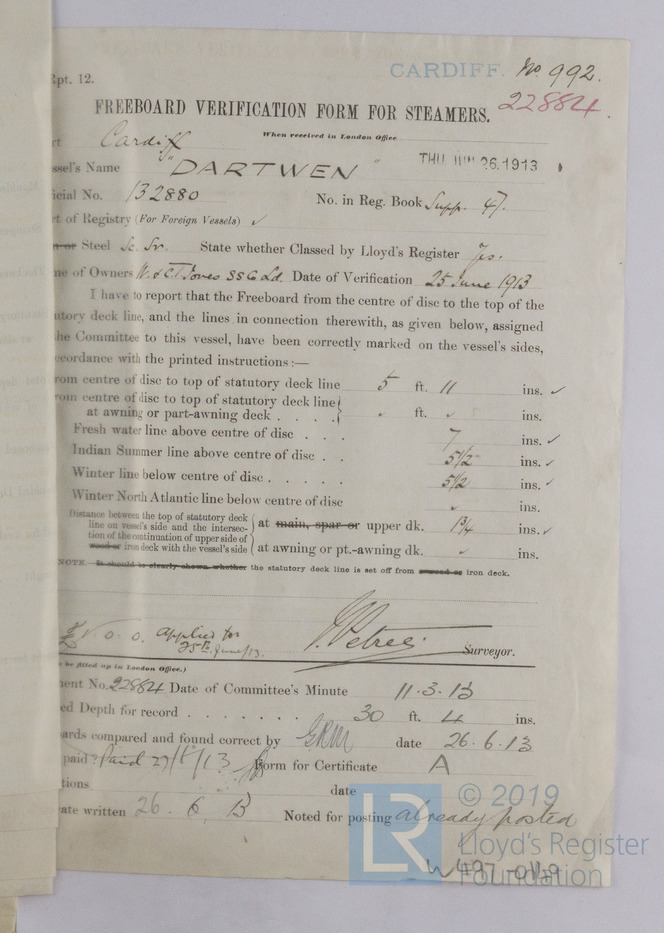 Rpt. 12.
CARDIFF. No 992.
22884.
FREEBOARD VERIFICATION FORM FOR STEAMERS.
When received in London Office
rt Cardiff
THU JUN 26.1913
ssel's Name "DARTWEN"
icial No. 132880 No. in Reg. Book Supp. 47.
t of Registry (For Foreign Vessels) ✓
n or Steel Sc. Sr. State whether Classed by Lloyd's Register Yes.
ne of Owners W. & C.T. Jones SS Co Ld. Date of Verification 25 June 1913
I have to report that the Freeboard from the centre of disc to the top of the
utory deck line, and the lines in connection therewith, as given below, assigned
he Committee to this vessel, have been correctly marked on the vessel's sides,
ccordance with the printed instructions :—
rom centre of disc to top of statutory deck line 5 ft. 11 ins. ✓
rom centre of disc to top of statutory deck line
at awning or part-awning deck . . . . ✓ ft. ✓ ins.
Fresh water line above centre of disc . . . 7 ins. ✓
Indian Summer line above centre of disc . . 5 1/2 ins. ✓
Winter line below centre of disc . . . . . 5 1/2 ins. ✓
Winter North Atlantic line below centre of disc ✓ ins.
Distance between the top of statutory deck
line on vessel's side and the intersec-
tion of the continuation of upper side of
wood or iron deck with the vessel's side
at main, spar or upper dk. 1 3/4 ins. ✓
at awning or pt.-awning dk. ✓ ins.
NOTE. It should be clearly shown whether the statutory deck line is set off from wood or iron deck.
o. o. applied for
25th June/13.
J. Petree. Surveyor.
be filled up in London Office.)
ment No. 22884 Date of Committee's Minute 11.3.13
ed Depth for record . . . . . . . 30 ft. 4 ins.
ards compared and found correct by GRM date 26.6.13
paid? Paid 27/6/13 Form for Certificate A
tions date
ate written 26.6.13 Noted for posting already posted
© 2019
LR
Lloyd's Register
Foundation
W497-0149